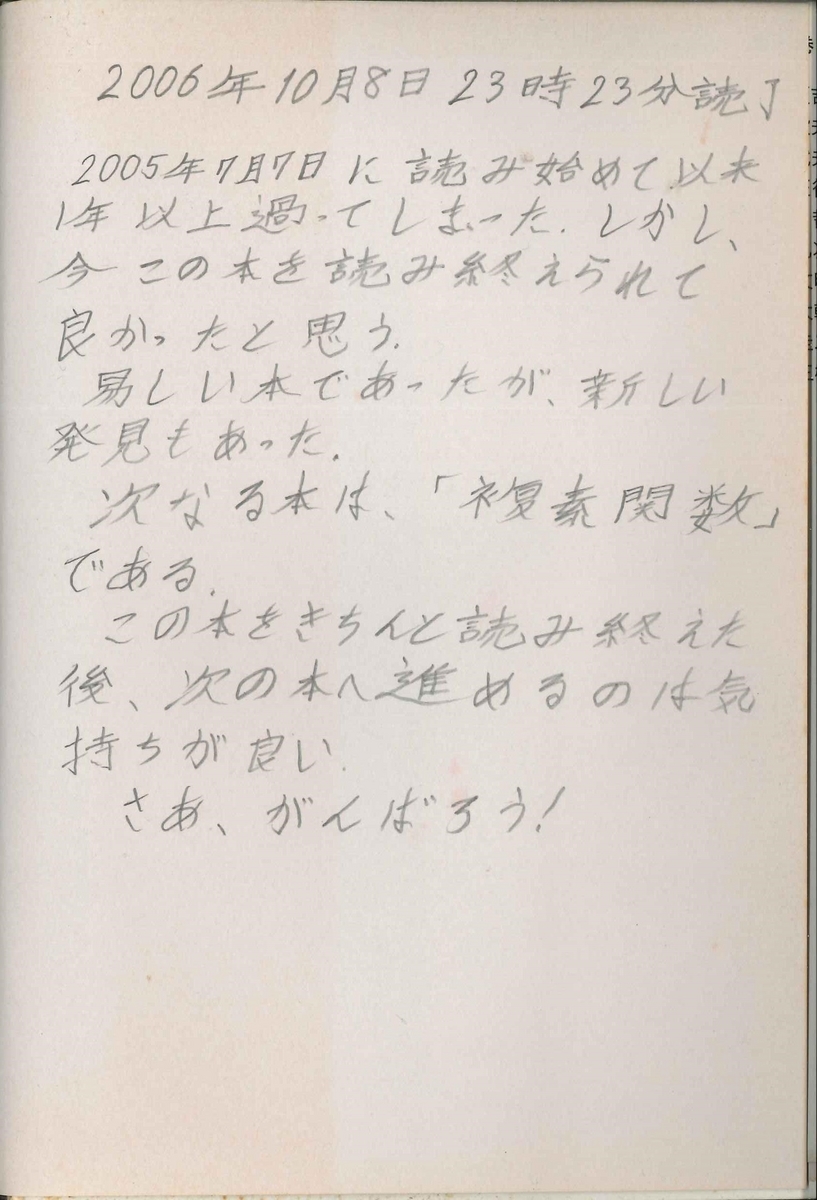 2006年10月8日 23時23分読了
2005年7月7日に読み始めて以来
1年以上過ってしまった.しかし、
今この本を読み終えられて
良かったと思う.
易しい本であったが、新しい
発見もあった.
次なる本は、「複素関数」
である.
この本をきちんと読み終えた
後、次の本へ進めるのは気
持ちが良い.
さあ、がんばろう!